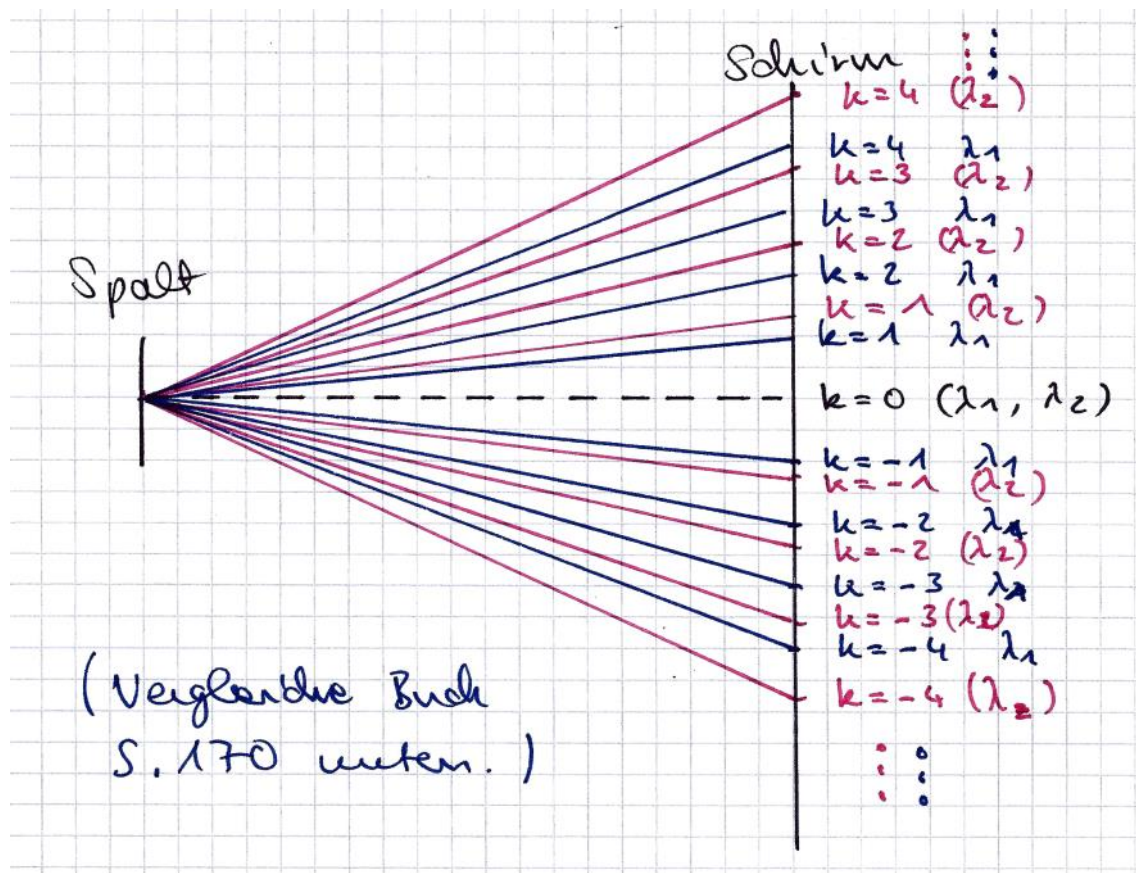 Schirm
k=4 (λ2)
k=4 λ1
k=3 (λ2)
k=3 λ1
k=2 (λ2)
Spalt
k=2 λ1
k=1 (λ2)
k=1 λ1
k=0 (λ1, λ2)
k=-1 λ1
k=-1 (λ2)
k=-2 λ1
k=-2 (λ2)
k=-3 λ1
k=-3 (λ2)
k=-4 λ1
(Vergleiche Buch
k=-4 (λ2)
S. 170 unten.)